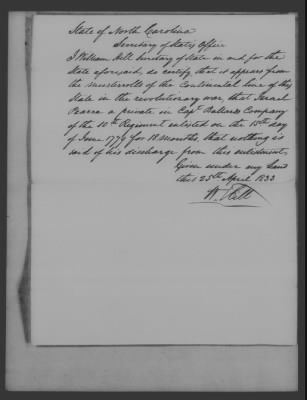 State of North Carolina
Secretary of States Office
I William Hill Secretary of State in and for the
State aforesaid, do certify, that it appears from
the musterrolls of the Continental line of this
State in the revolutionary war that Israel
Pearce a private in Capt Ballards Company
of the 10th Regiment enlisted on the 10th day
of June 1779 for 18 months, that nothing is
said of his discharge from this enlistment,
Given under my hand
this 25th April 1833
W. Hill